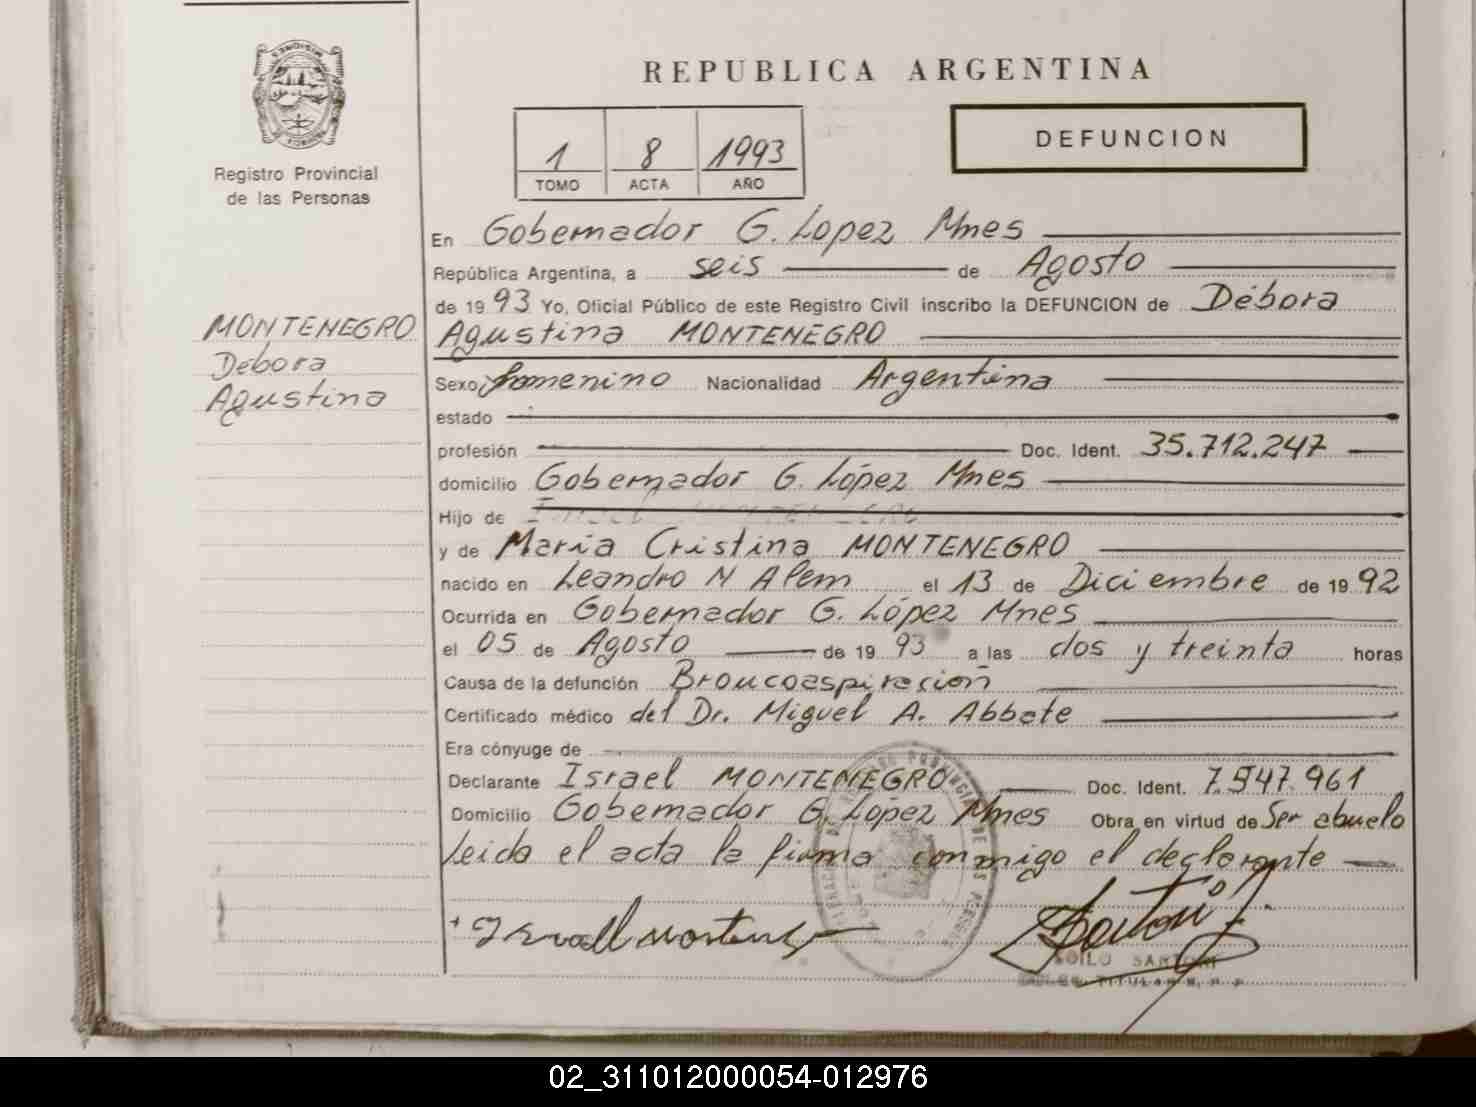 MISIONES
Registro Provincial
de las Personas
MONTENEGRO
Debora
Agustina
REPUBLICA ARGENTINA
1 8 1993
TOMO ACTA AÑO
DEFUNCION
En Gobernador G. Lopez Mnes
República Argentina, a seis de Agosto
de 1993 Yo, Oficial Público de este Registro Civil inscribo la DEFUNCION de Débora
Agustina MONTENEGRO
Sexo femenino Nacionalidad Argentina
estado
profesión Doc. Ident. 35.712.247
domicilio Gobernador G. López Mnes
Hijo de
y de Maria Cristina MONTENEGRO
nacido en Leandro N Alem el 13 de Diciembre de 1992
Ocurrida en Gobernador G. López Mnes
el 05 de Agosto de 1993 a las dos y treinta horas
Causa de la defunción Broncoaspiración
Certificado médico del Dr. Miguel A. Abbate
Era cónyuge de
Declarante Israel MONTENEGRO Doc. Ident. 7.547.961
Domicilio Gobernador G. López Mnes Obra en virtud de Ser abuelo
Leida el acta la firma conmigo el declarante
SARTORI
02_311012000054-012976